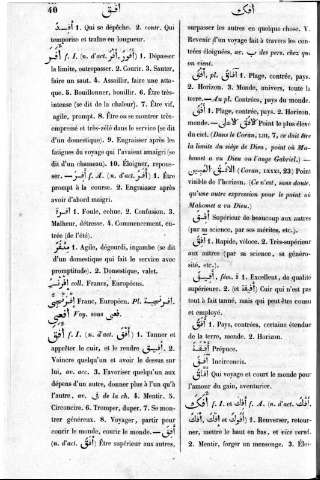 40
أفق
أفك
أفد 1. Qui se dépêche. 2. contr. Qui
temporise et traîne en longueur.
أفر f. I. (n. d'act. أفر, أفور) 1. Dépasser
la limite, outrepasser. 2. Courir. 3. Sauter,
faire un saut. 4. Assaillir, faire une atta-
que. 5. Bouillonner, bouillir. 6. Être très-
intense (se dit de la chaleur). 7. Être vif,
agile, prompt. 8. Être ou se montrer très-
empressé et très-zélé dans le service (se dit
d'un domestique). 9. Engraisser après les
fatigues du voyage qui l'avaient amaigri (se
dit d'un chameau). 10. Éloigner, repous-
ser. — أفر f. A. (n. d'act. أفر) 1. Être
prompt à la course. 2. Engraisser après
avoir d'abord maigri.
أفرة 1. Foule, cohue. 2. Confusion. 3.
Malheur, détresse. 4. Commencement, en-
trée (de l'été).
مئفر 1. Agile, dégourdi, ingambe (se dit
d'un domestique qui fait le service avec
promptitude). 2. Domestique, valet.
إفرنج coll. Francs, Européens.
إفرنجي Franc, Européen. Pl. إفرنجية.
أفعى Voy. sous فعى.
أفق f. I. (n. d'act. أفق) 1. Tanner et
apprêter le cuir, et le rendre أفيق. 2.
Vaincre quelqu'un et avoir le dessus sur
lui, av. acc. 3. Favoriser quelqu'un aux
dépens d'un autre, donner plus à l'un qu'à
l'autre, av. في de la ch. 4. Mentir. 5.
Circoncire. 6. Tromper, duper. 7. Se mon-
trer généreux. 8. Voyager, partir pour
courir le monde, courir le monde.— أفق
(n. d'act. أفق) Être supérieur aux autres,
surpasser les autres en quelque chose. V.
Revenir d'un voyage fait à travers les con-
trées éloignées, av. ب des pays, chez qu-
on vient.
أفق, pl. آفاق 1. Plage, contrée, pays.
2. Horizon. 3. Monde, univers, toute la
terre.—Au pl. Contrées, pays du monde.
أفق, pl. آفاق 1. Plage, contrée, pays.
2. Horizon. — الأفق الأعلى Point le plus élevé
du ciel. (Dans le Coran, LIII, 7, ce doit être
la limite du siège de Dieu, point où Ma-
homet a vu Dieu ou l'ange Gabriel.) —
الأفق المبين (Coran, LXXXI, 23) Point
visible de l'horizon. (Ce n'est, sans doute,
qu'une autre expression pour le point où
Mahomet a vu Dieu.)
آفق Supérieur de beaucoup aux autres
(par sa science, par ses mérites, etc.).
أفق 1. Rapide, véloce. 2. Très-supérieur
aux autres (par sa science, sa généro-
sité, etc.).
أفيق, fém. ة 1. Excellent, de qualité
supérieure. 2. (et أفيقة) Cuir qui n'est pas
tout à fait tanné, mais qui peut être cousu
et employé.
أفق 1. Pays, contrées, certaine étendue
de la terre, monde. 2. Horizon.
أفقة Prépuce.
آفق Incirconcis.
أفاق Qui voyage et court le monde pour
l'amour du gain, aventurier.
أفك f. I. et أفك f. A. (n. d'act. أفك,
إفك, أفك et أفوك) 1. Renverser, retour-
ner, mettre le haut en bas, et vice versâ.
2. Mentir, forger un mensonge. 3. Éloi-